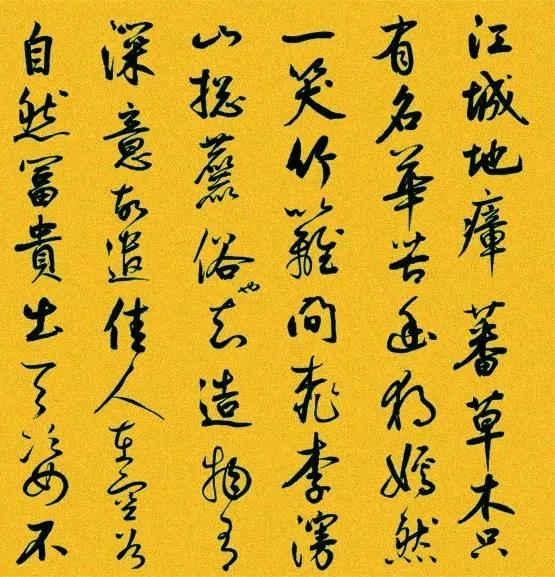 江城地瘴蕃草木只
有名華苦幽獨嫣然
一笑竹籬間桃李漫
山總麤俗也知造物有
深意故遣佳人在空谷
自然富貴出天姿不